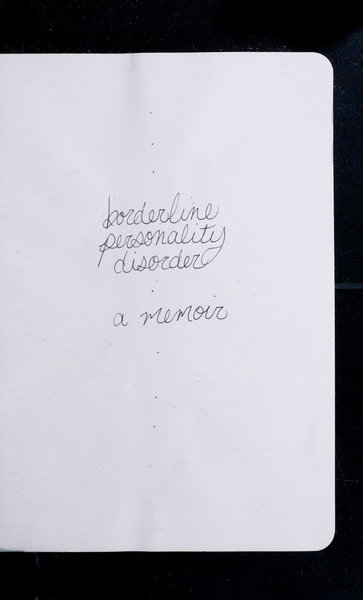 borderline
personality
disorder
a memoir